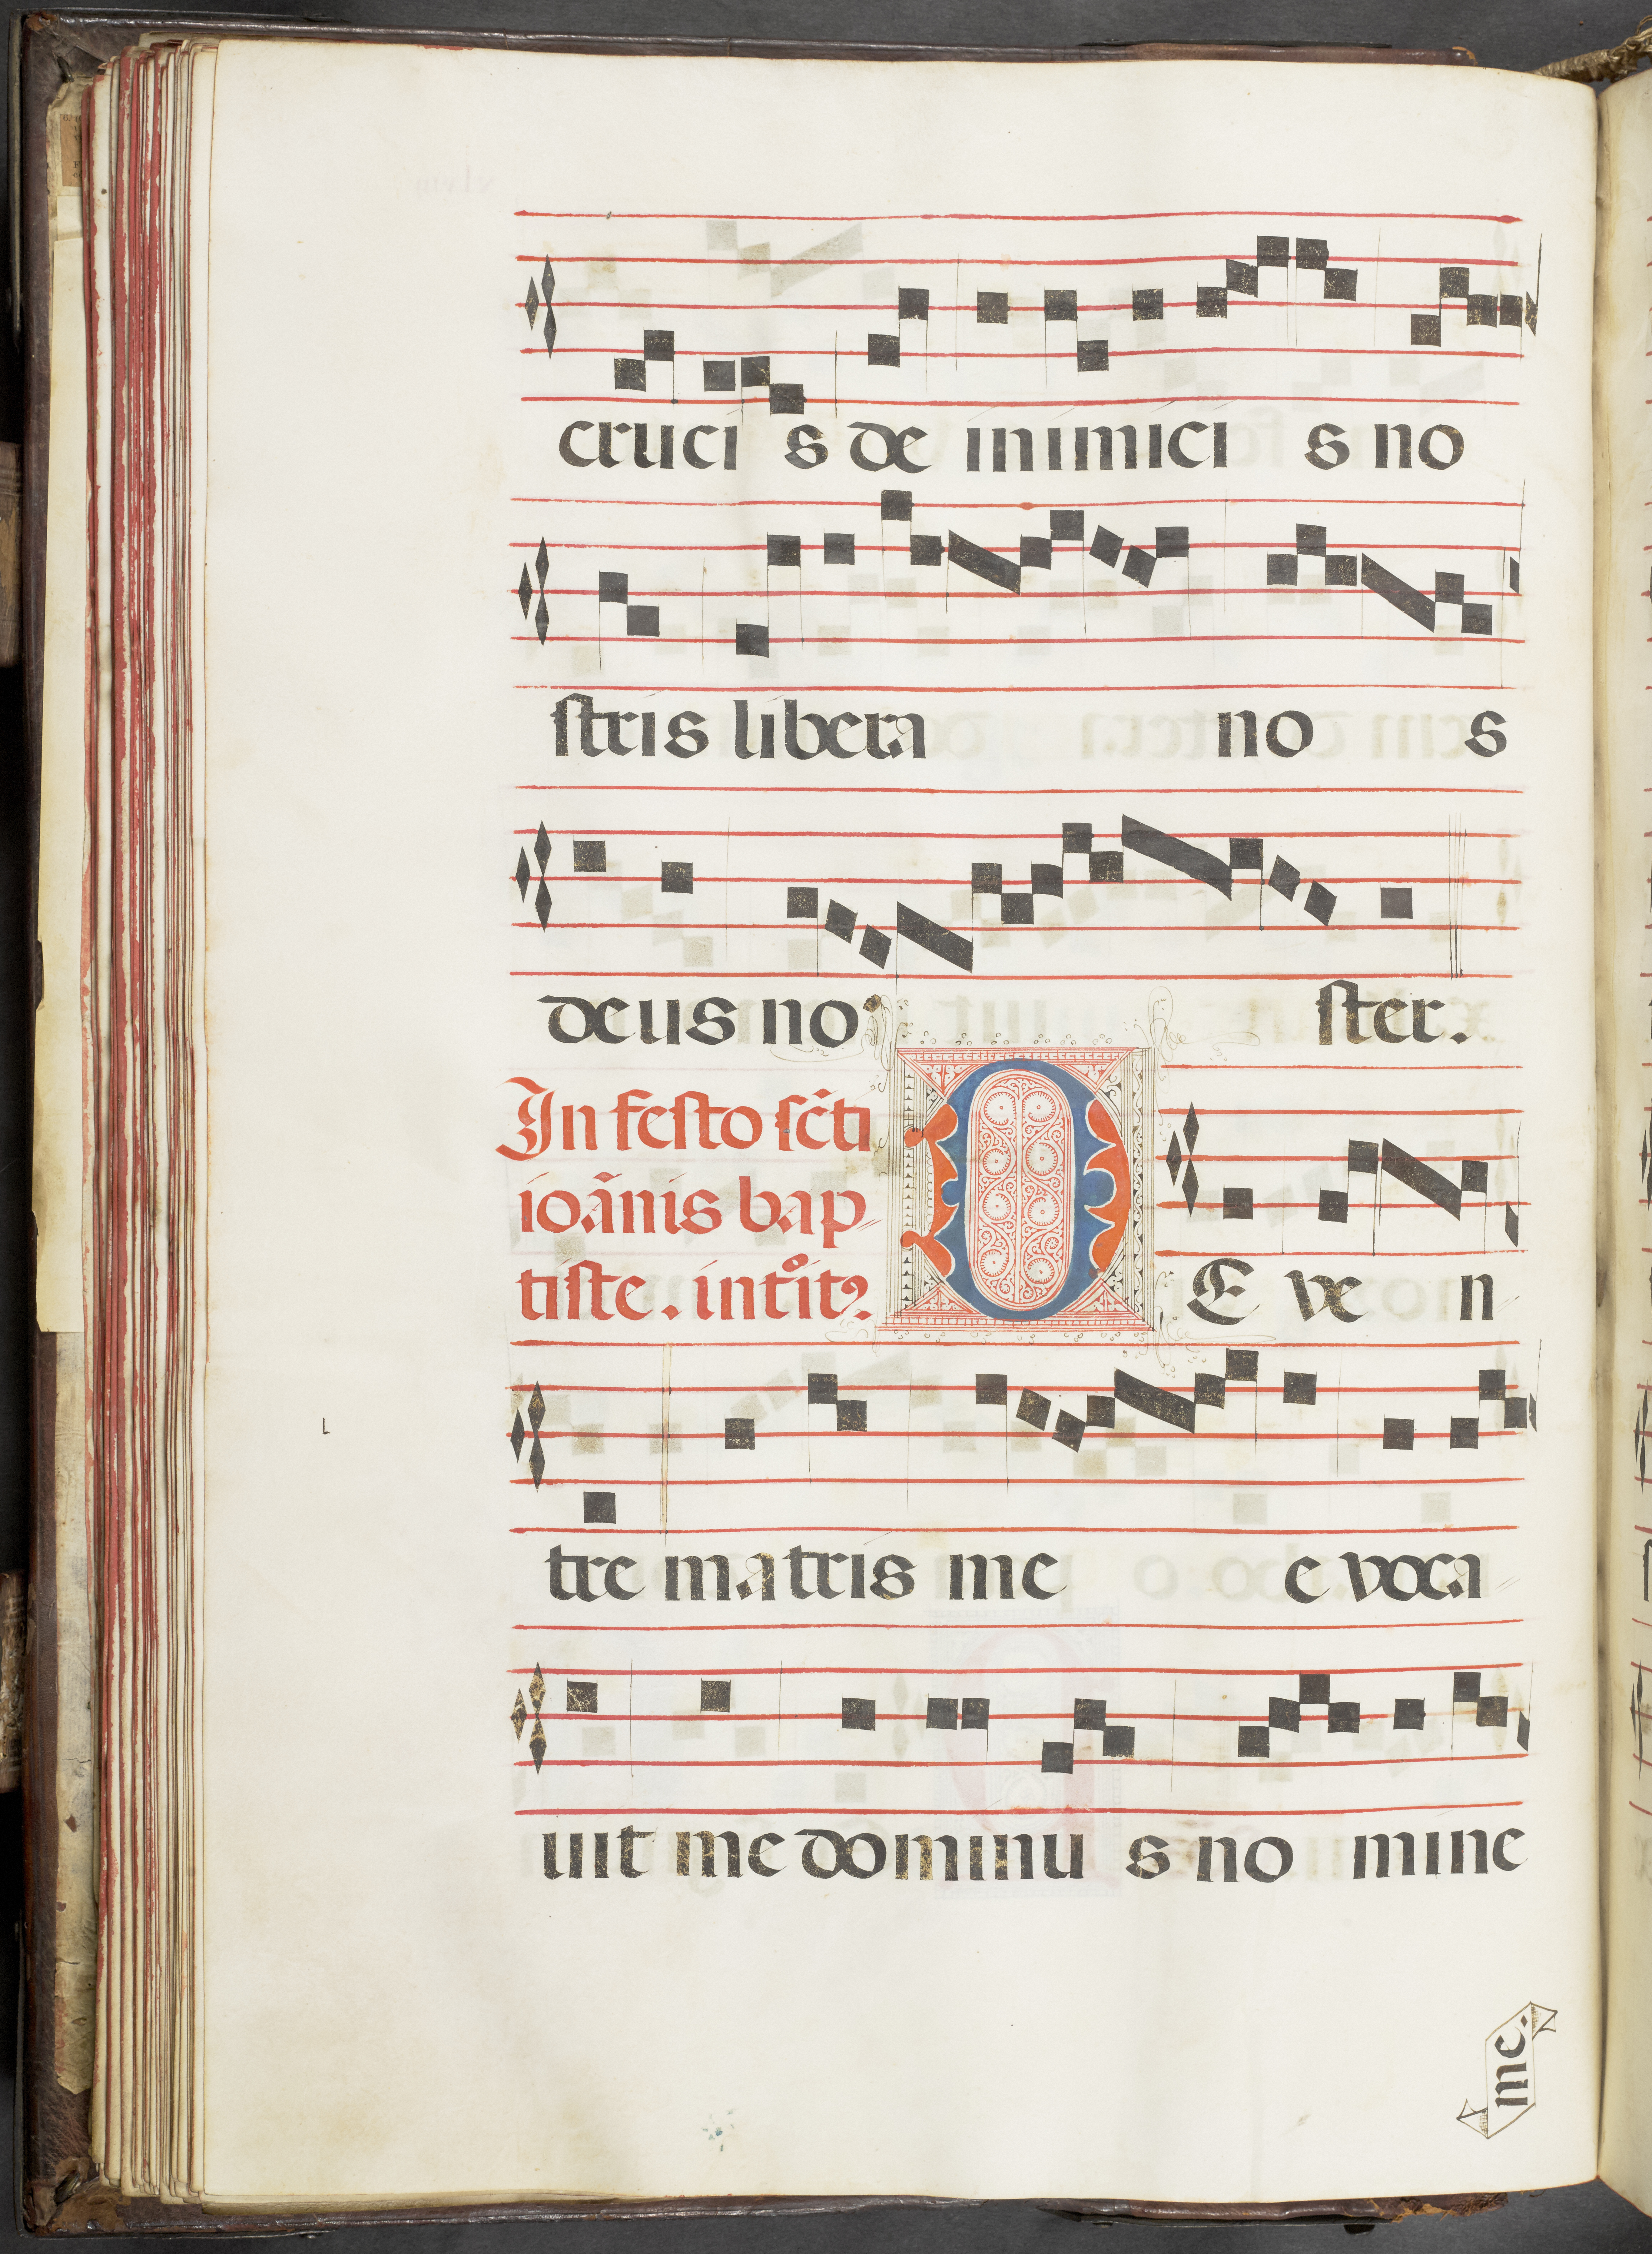 cruci s de inimici s no
stris libera no s
deus no ster.
In festo scti
ioãnis bap
tiste. introit9
D E ve n
tre matris me e voca
uit me dominu s no mine
me.